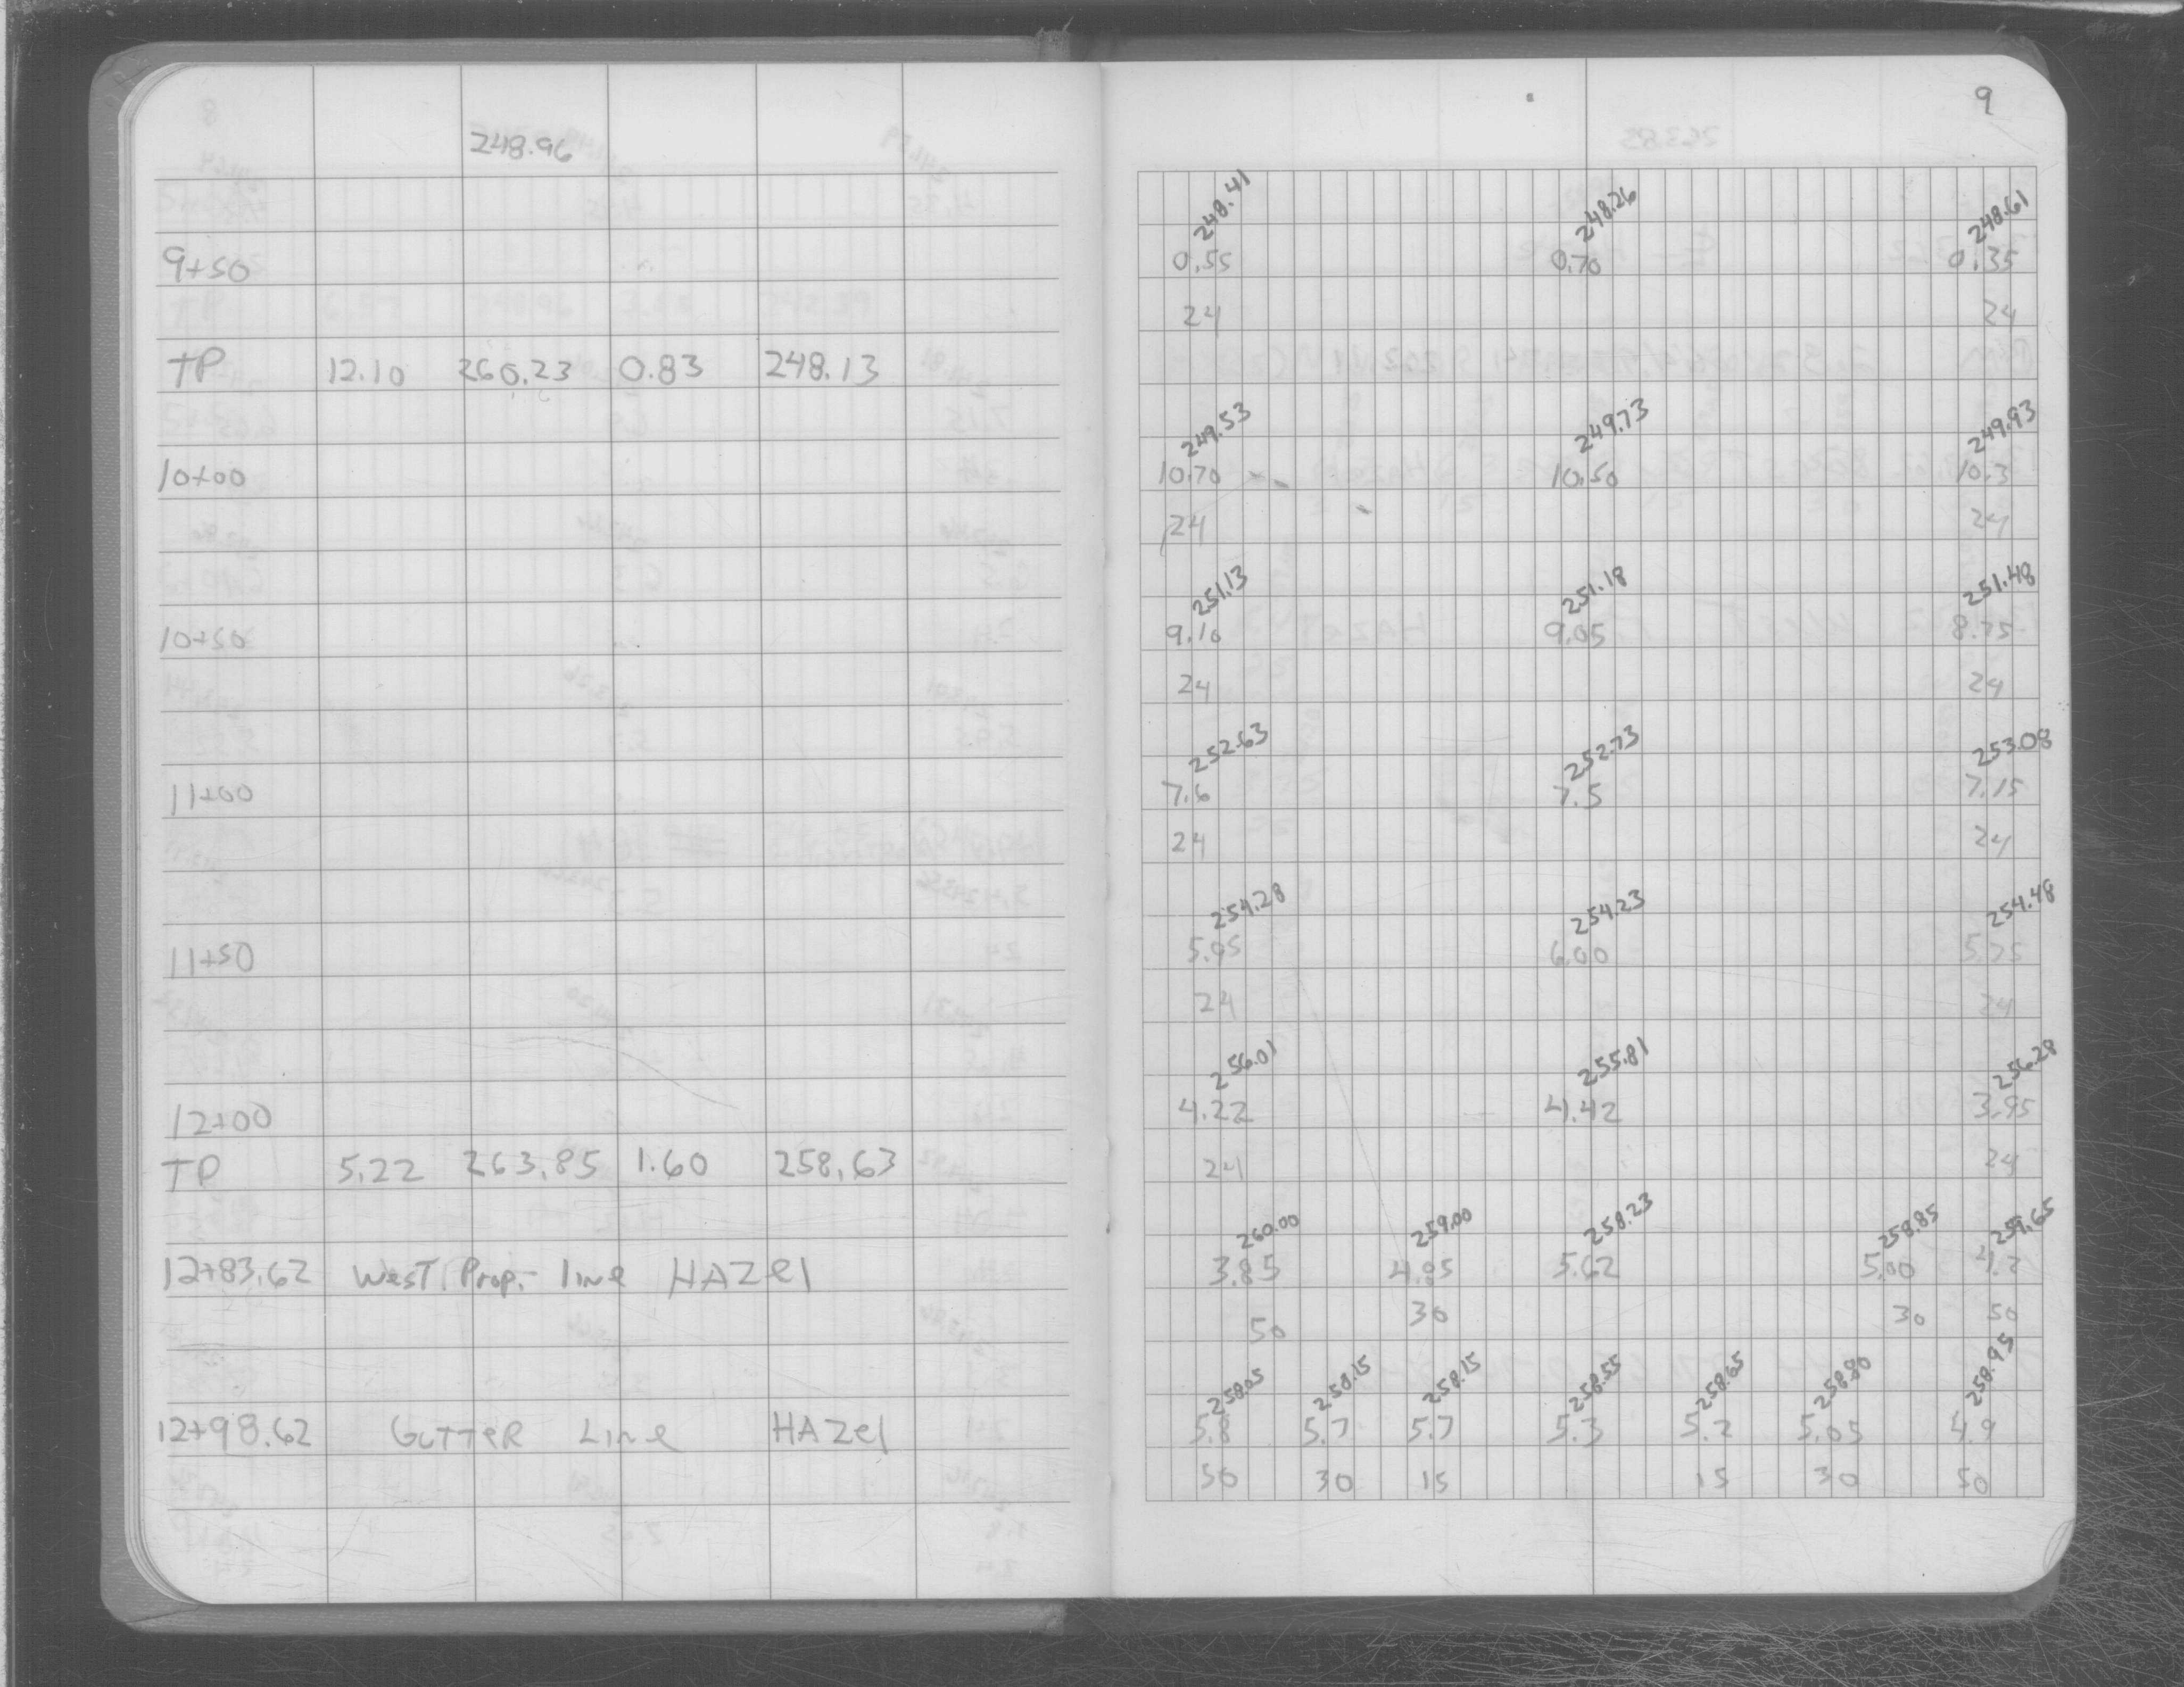 9
248.96
248.41 248.26 248.61
9+50 0.55 0.70 0.35
24 24
TP 12.10 260.23 0.83 248.13
249.53 249.73 249.93
10+00 10.70 10.50 10.3
24 24
251.13 251.18 251.48
10+50 9.10 9.05 8.75
24 24
252.63 252.73 253.08
11+00 7.6 7.5 7.15
24 24
254.28 254.23 254.48
11+50 5.95 6.00 5.75
24 24
256.01 255.81 256.28
12+00 4.22 4.42 3.95
TP 5.22 263.85 1.60 258.63 24 24
260.00 259.00 258.23 258.85 259.65
12+83.62 West. Prop. line HAZel 3.85 4.85 5.62 5.00 4.2
50 30 30 50
258.05 258.15 258.15 258.55 258.65 258.80 258.95
12+98.62 GuTTeR Line HAZel 5.8 5.7 5.7 5.3 5.2 5.05 4.9
50 30 15 15 30 50